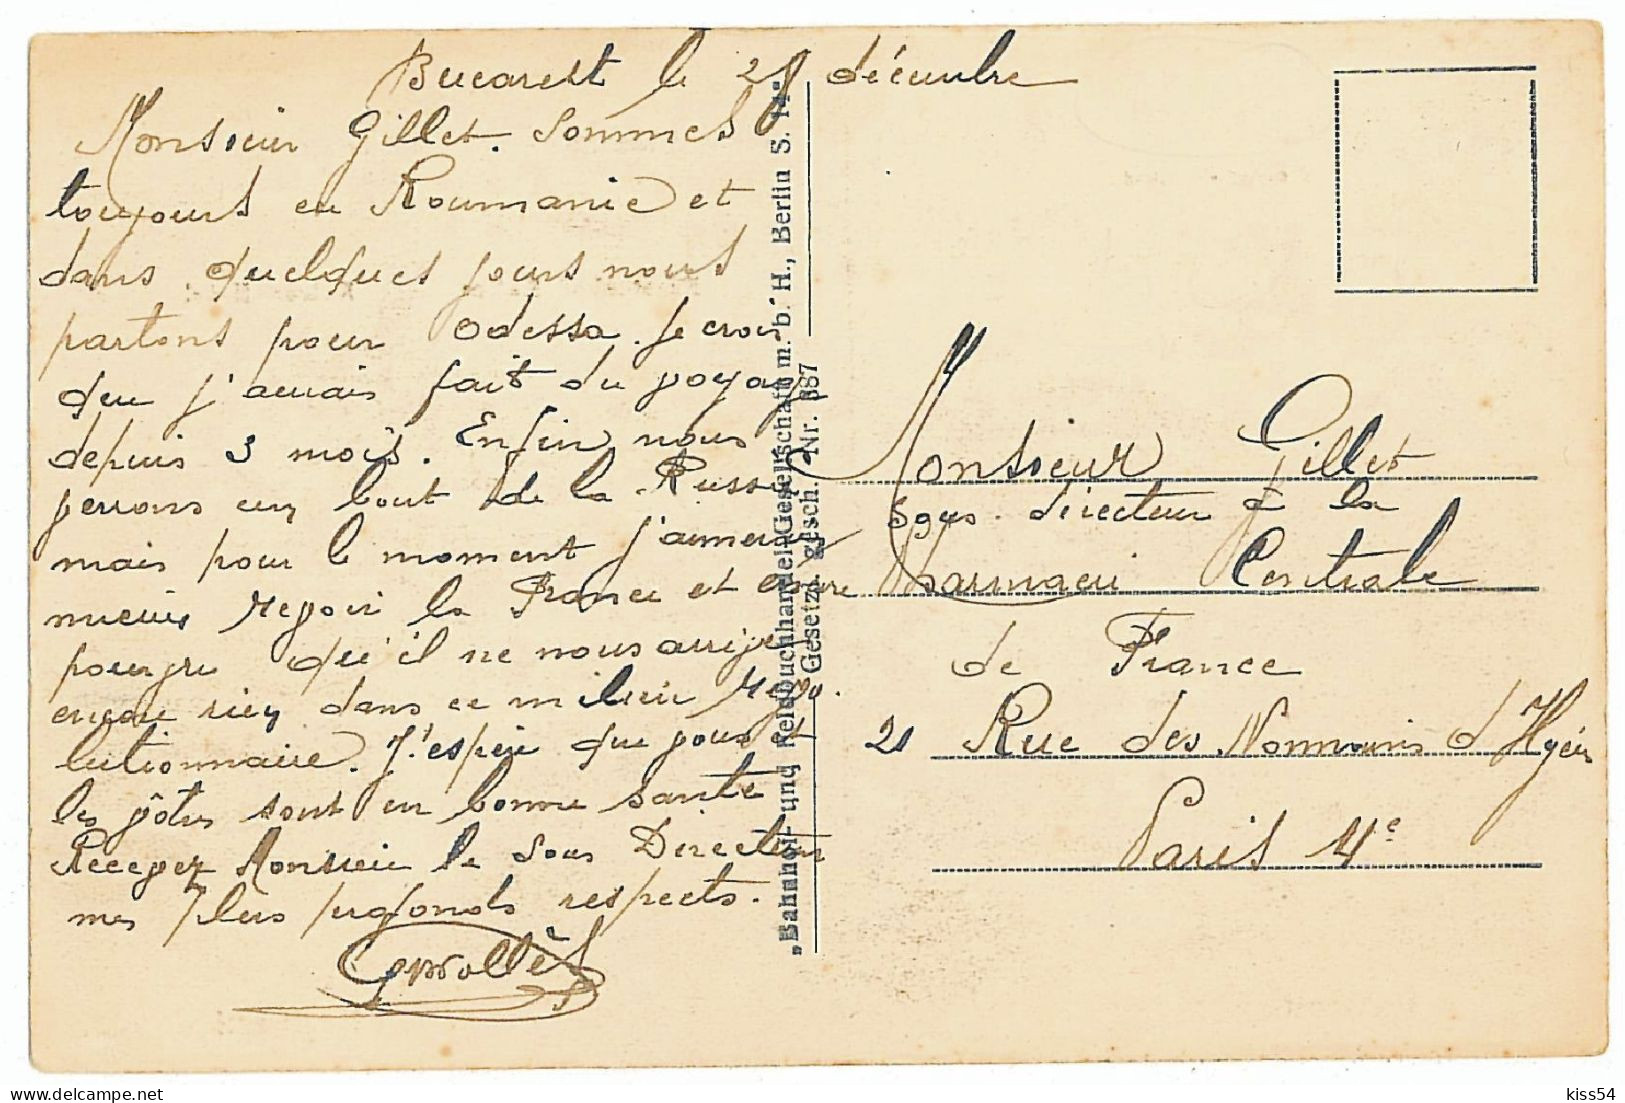 Bucarest le 28 décembre
Monsieur Gillet. Sommes
toujours en Roumanie et
dans quelques jours nous
partons pour Odessa. Je crois
que j'aurais fait du voyage
depuis 3 mois. Enfin nous
verrons un bout de la Russie
mais pour le moment j'aimerais
mieux revoir la France et encore
pourvu qu'il ne nous arrive
encore rien dans ce milieu révo.
lutionnaire. J'espère que vous et
les vôtres sont en bonne santé
Recevez Monsieur le Sous Directeur
mes plus profonds respects.
„Bahnhof- und Feldbuchhandel-Gesellschaft m. b. H., Berlin S. 14“
Gesetzl. gesch. Nr. 887
Monsieur Gillet
Sous directeur à la
Pharmacie Centrale
de France
21 Rue des Nonnains d'Hyères
Paris 4e
kiss54